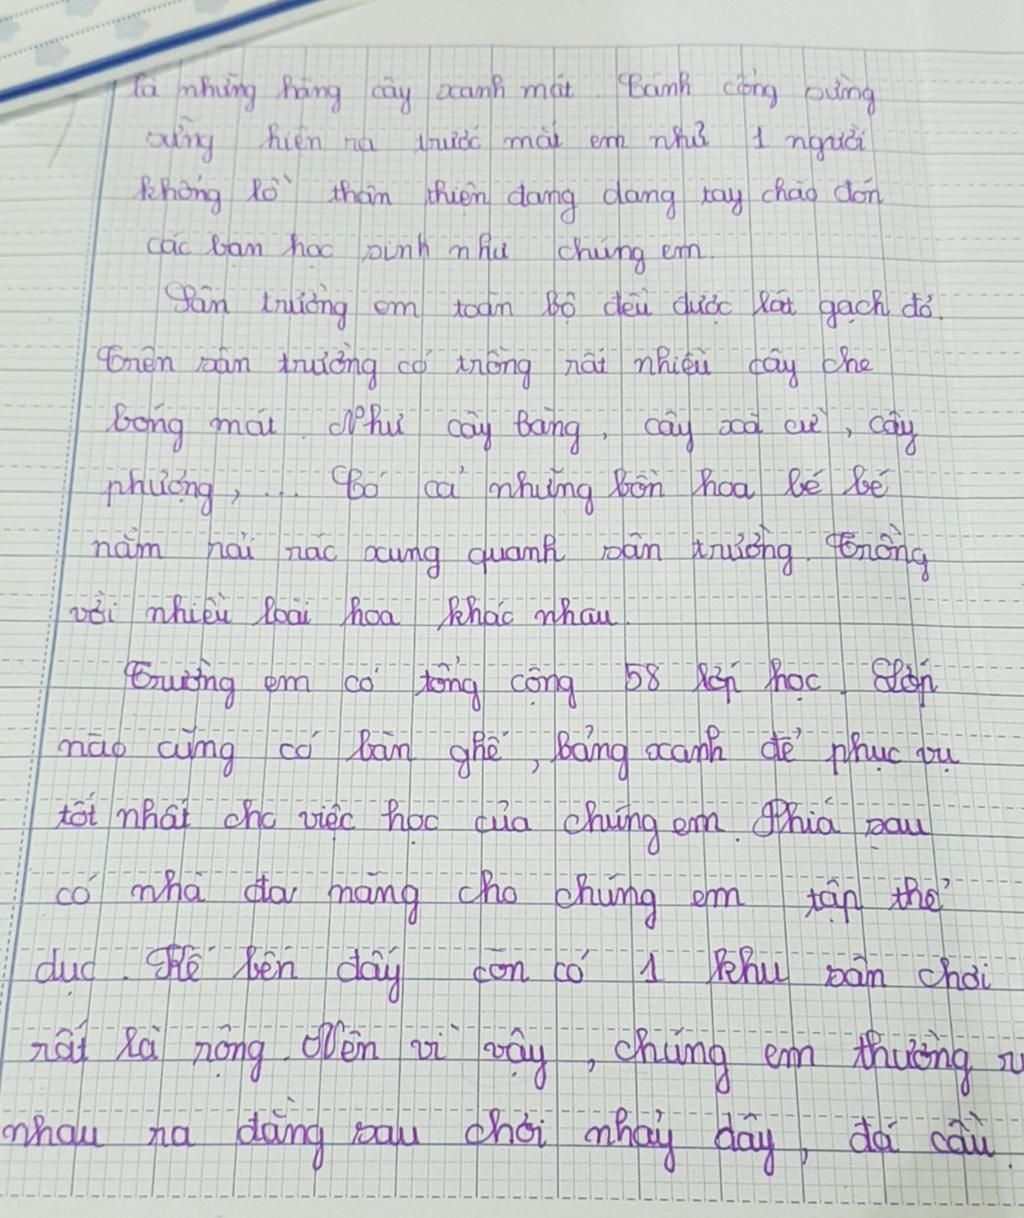 là những hàng cây xanh mát. Cánh cổng sừng
sững hiện ra trước mắt em như 1 người
khổng lồ thân thiện đang dang tay chào đón
các bạn học sinh như chúng em.
Sân trường em toàn bộ đều được lát gạch đỏ.
Trên sân trường có trồng rất nhiều cây che
bóng mát. Như cây bàng, cây xà cừ, cây
phượng, ... Có cả những bồn hoa bé bé
nằm rải rác xung quanh sân trường. Trồng
với nhiều loài hoa khác nhau.
Trường em có tổng cộng 58 lớp học. Lớp
nào cũng có bàn ghế, bảng xanh để phục vụ
tốt nhất cho việc học của chúng em. Phía sau
có nhà đa năng cho chúng em tập thể
dục. Kế bên đấy còn có 1 khu sân chơi
rất là rộng. Nên vì vậy, chúng em thường
nhau ra đằng sau chơi nhảy dây, đá cầu.